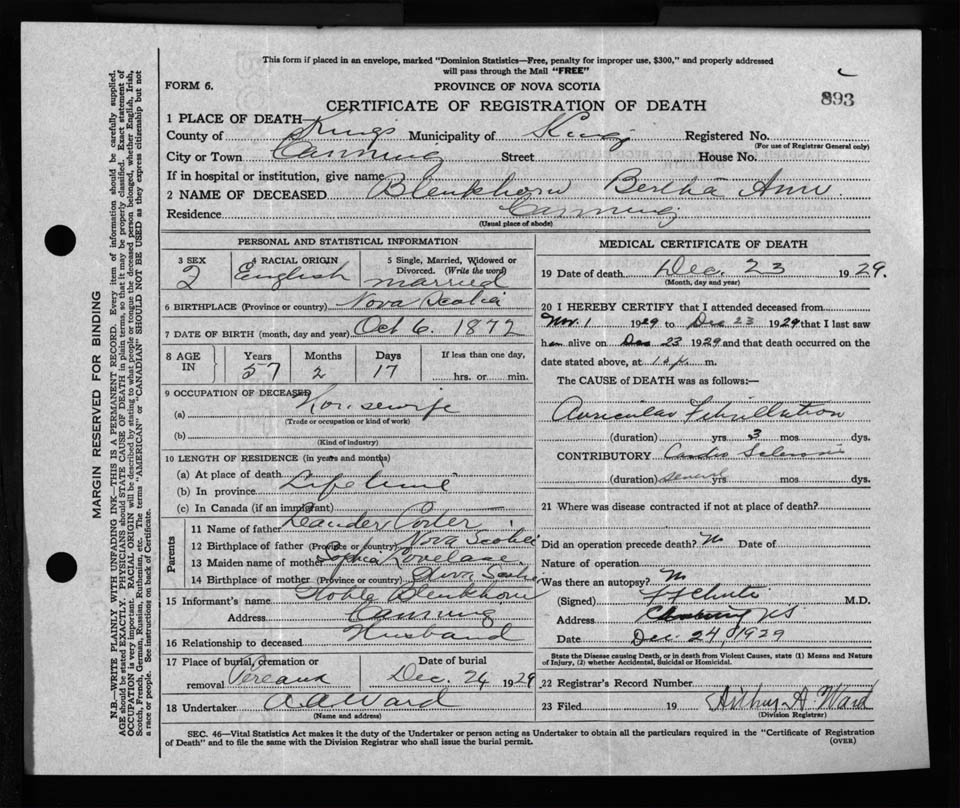 This form if placed in an envelope, marked "Dominion Statistics—Free, penalty for improper use, $300," and properly addressed
will pass through the Mail "FREE"
FORM 6.
PROVINCE OF NOVA SCOTIA
893
CERTIFICATE OF REGISTRATION OF DEATH
1 PLACE OF DEATH—
County of Kings Municipality of Kings Registered No.
(For use of Registrar General only)
City or Town Canning Street House No.
If in hospital or institution, give name
2 NAME OF DECEASED Blenkhorn Bertha Ann
Residence Canning
(Usual place of abode)
PERSONAL AND STATISTICAL INFORMATION
3 SEX
2
4 RACIAL ORIGIN
English
5 Single, Married, Widowed or
Divorced. (Write the word)
married
6 BIRTHPLACE (Province or country) Nova Scotia
7 DATE OF BIRTH (month, day and year) Oct 6. 1872
8 AGE
IN
Years Months Days If less than one day,
57 2 17 hrs. or min.
9 OCCUPATION OF DECEASED
(a) Housewife
(Trade or occupation or kind of work)
(b)
(Kind of industry)
10 LENGTH OF RESIDENCE (in years and months)
(a) At place of death
(b) In province Lifetime
(c) In Canada (if an immigrant)
Parents
11 Name of father Leander Porter
12 Birthplace of father (Province or country) Nova Scotia
13 Maiden name of mother Sophia Lovelace
14 Birthplace of mother (Province or country) Nova Scotia
15 Informant's name Noble Blenkhorn
Address Canning
16 Relationship to deceased Husband
17 Place of burial, cremation or
removal Pereaux
Date of burial
Dec. 24 1929
18 Undertaker A A Ward
(Name and address)
MEDICAL CERTIFICATE OF DEATH
19 Date of death Dec. 23 1929.
(Month, day and year)
20 I HEREBY CERTIFY that I attended deceased from
Nov. 1 1929 to Dec 23 1929 that I last saw
her alive on Dec 23 1929 and that death occurred on the
date stated above, at m.
The CAUSE OF DEATH was as follows:—
Auricular Fibrillation
(duration) yrs. 3 mos dys.
CONTRIBUTORY Cardio Sclerosis
(duration) several yrs mos dys.
21 Where was disease contracted if not at place of death?
Did an operation precede death? No Date of
Nature of operation
Was there an autopsy? No
(Signed) M.D.
Address Canning NS
Date Dec. 24, 1929
State the Disease causing Death, or in death from Violent Causes, state (1) Means and Nature
of Injury, (2) whether Accidental, Suicidal or Homicidal.
22 Registrar's Record Number
23 Filed 19 Arthur A. Ward
(Division Registrar)
SEC. 46—Vital Statistics Act makes it the duty of the Undertaker or person acting as Undertaker to obtain all the particulars required in the "Certificate of Registration
of Death" and to file the same with the Division Registrar who shall issue the burial permit.
(OVER)
MARGIN RESERVED FOR BINDING
N.B.—WRITE PLAINLY WITH UNFADING INK—THIS IS A PERMANENT RECORD. Every item of information should be carefully supplied.
AGE should be stated EXACTLY. PHYSICIANS should STATE CAUSE OF DEATH in plain terms, so that it may be properly classified. Exact statement of
OCCUPATION is very important. RACIAL ORIGIN will be described by stating to what people or tongue the deceased person belonged, whether English, Irish,
Scotch, French, German, Russian, Ruthenian, etc. The terms "AMERICAN" or "CANADIAN" SHOULD NOT BE USED as they express citizenship but not
a race or people. See instructions on back of Certificate.